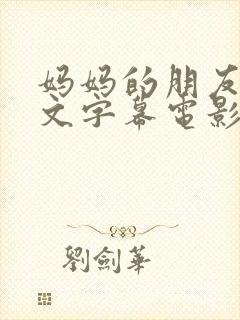 妈妈的朋友
文字幕电影
劉劍華